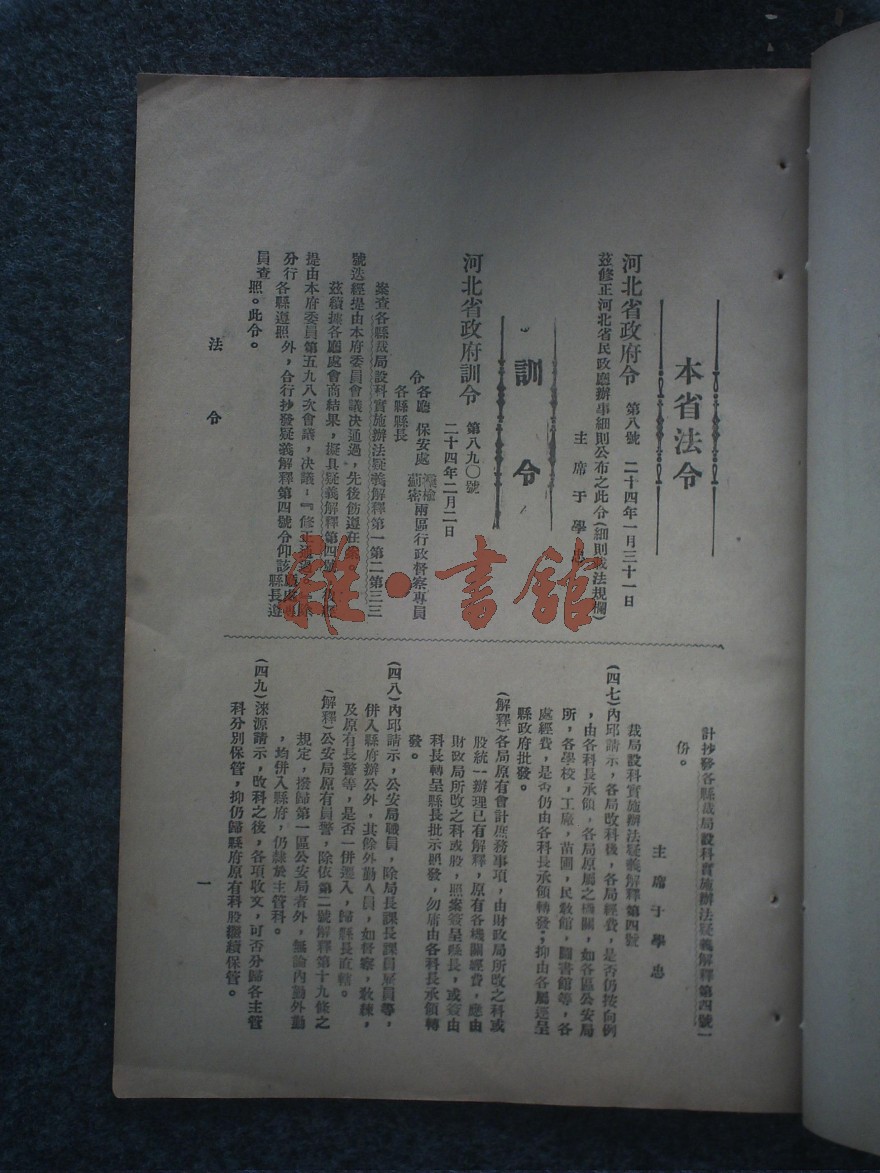 本省法令
河北省政府令 第八號 二十四年一月三十一日
茲修正河北省民政廳辦事細則公布之此令(細則載法規欄)
主席于學忠
訓令
河北省政府訓令 第八九〇號
二十四年二月二日
令各廳 保安處 灤榆薊密兩區行政督察專員
各縣縣長
案查各縣裁局設科實施辦法疑義解釋第一第二第三三
號迭經提由本府委員會議決通過,先後飭遵在
茲續據各廳處會商結果,擬具疑義解釋第四號
提由本府委員第五九八次會議,決議:『修正通過。』
分行各縣遵照外,合行抄發疑義解釋第四號令仰該 縣長遵
員查照。此令。
計抄發各縣裁局設科實施辦法疑義解釋第四號一
份。
主席于學忠
裁局設科實施辦法疑義解釋第四號
(四七)內邱請示,各局改科後,各局經費,是否仍按向例
,由各科長承領,各局原屬之機關,如各區公安局
所,各學校,工廠,苗圃,民教館,圖書館等,各
處經費,是否仍由各科長承領轉發;抑由各屬逕呈
縣政府批發。
(解釋)各局原有會計庶務事項,由財政局所改之科或
股統一辦理已有解釋,原有各機關經費,應由
財政局所改之科或股,照案簽呈縣長,或簽由
科長轉呈縣長批示照發,勿庸由各科長承領轉
發。
(四八)內邱請示,公安局職員,除局長課長課員雇員等,
併入縣府辦公外,其餘外勤人員,如督察,教練,
及原有長警等,是否一併遷入,歸縣長直轄。
(解釋)公安局原有員警,除依第二號解釋第十九條之
規定,撥歸第一區公安局者外,無論內勤外勤
,均併入縣府,仍隸於主管科。
(四九)淶源請示,改科之後,各項收文,可否分歸各主管
科分別保管,抑仍歸縣府原有科股繼續保管。
法令
一
雜·書館